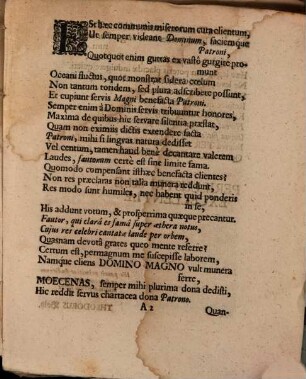 ESt hæc communis miserorum cura clientum,
Ut semper videant Dominum, faciemque
Patroni,
Quotquot enim guttas ex vasto gurgite pro-
munt
Oceani fluctus, quot monstrat sidera cœlum
Non tantum tondem, sed plura adscribere possunt,
Et cupiant servis Magni benefacta Patroni.
Semper enim à Dominis servis tribuuntur honores,
Maxima de quibus hic servare silentia præstat,
Quam non eximiis dictis extendere facta
Patroni, mihi si lingvas natura dedisset
Vel centum, tamen haud benè decantare valerem
Laudes, fautorum certè est sine limite fama.
Quomodo compensant isthæc benefacta clientes?
Non res præclaras non talia munera reddunt,
Res modo sunt humiles, nec habent quid ponderis
in se,
His addunt votum, & prosperrima quæque precantur.
Fautor, qui clarâ es famâ super æthera notus,
Cujus res celebri cantatæ laude per orbem,
Quænam devotâ grates queo mente referre?
Certum est, permagnum me suscepisse laborem,
Namque cliens DOMINO MAGNO vult munera
ferre,
MOECENAS, semper mihi plurima dona dedisti,
Hic reddit servus chartacea dona Patrono.
A 2
Quan-